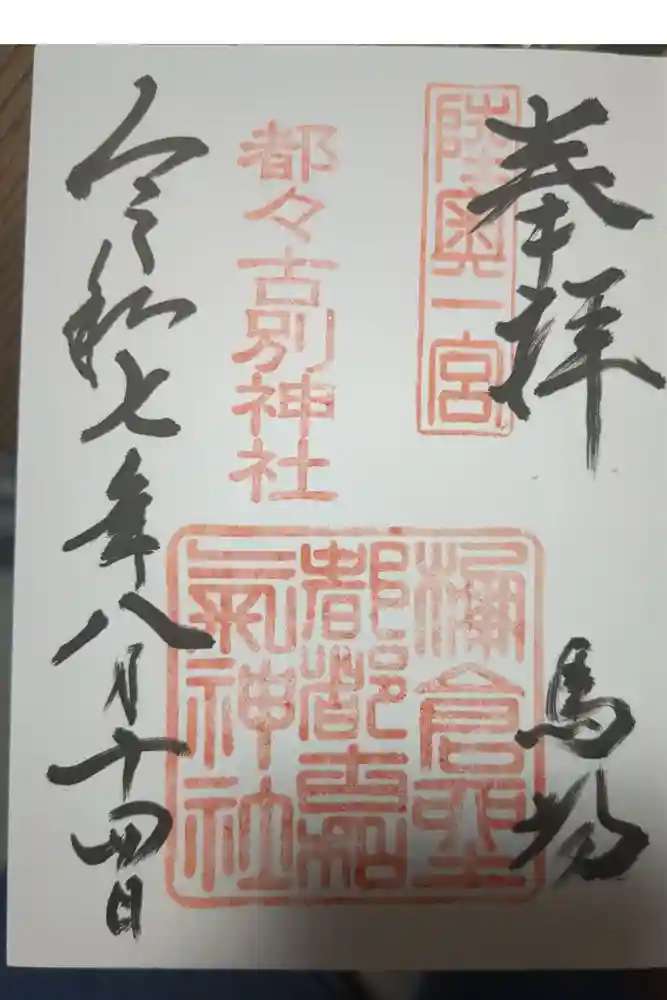 奉拝
陸奥一宮
馬場
都々古別神社
棚倉坐
都都古和
氣神社
令和七年八月十四日